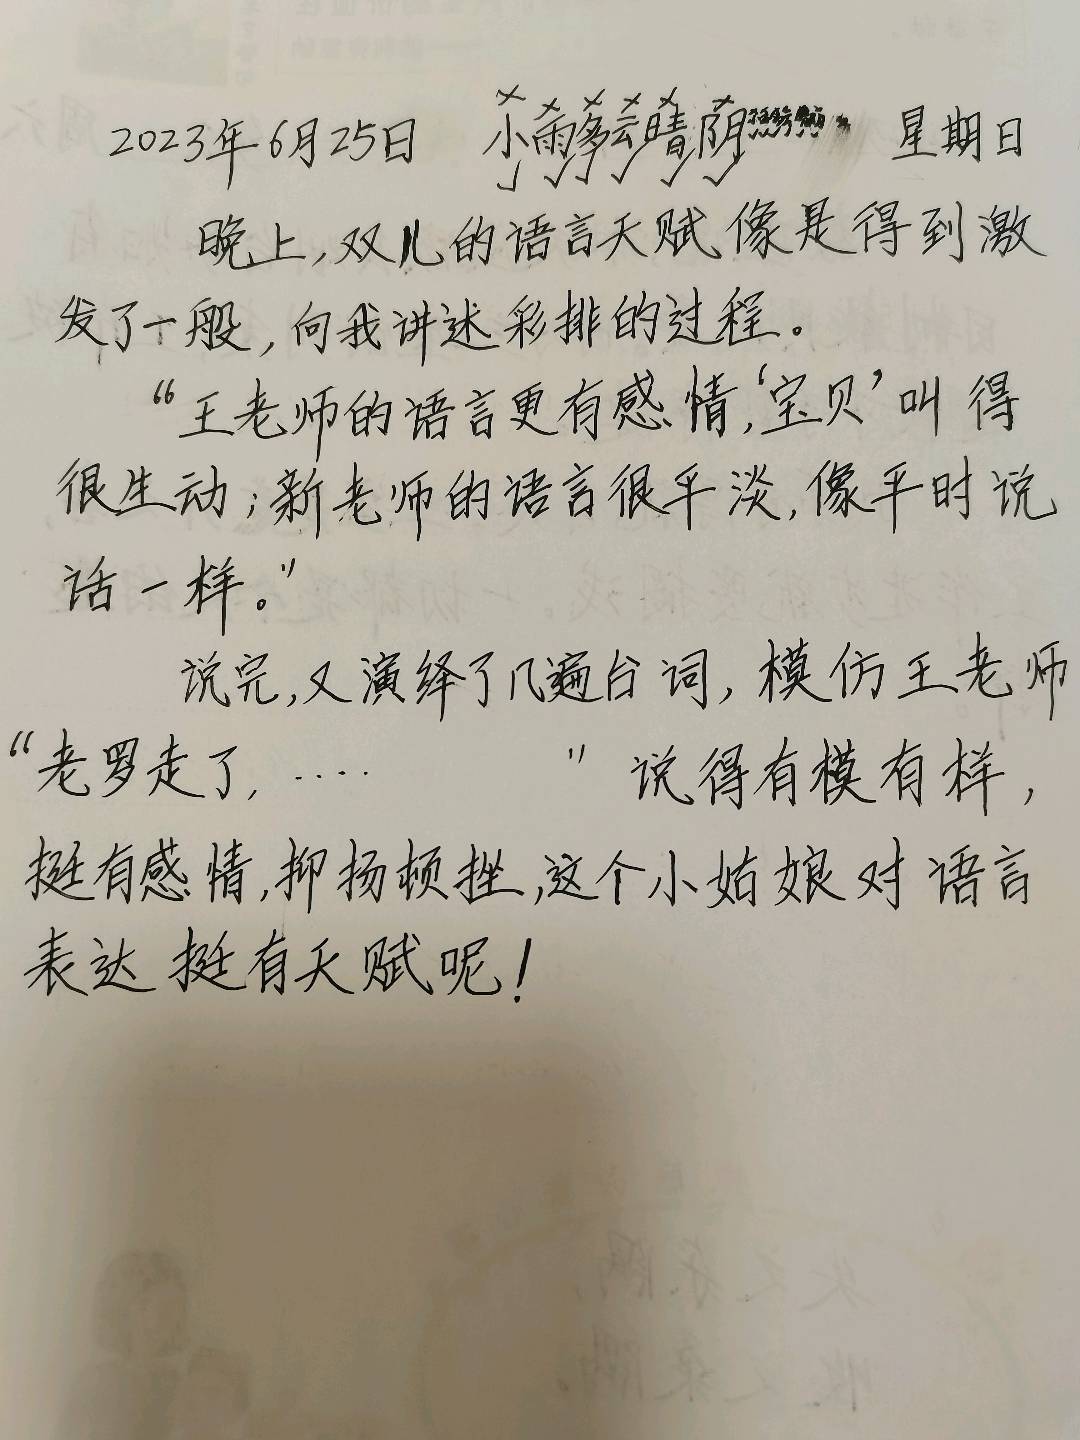 2023年6月25日 小雨多云晴阴 星期日
晚上,双儿的语言天赋像是得到激
发了一般,向我讲述彩排的过程。
“王老师的语言更有感情,‘宝贝’叫得
很生动;新老师的语言很平淡,像平时说
话一样。”
说完,又演绎了几遍台词,模仿王老师
“老罗走了,····”说得有模有样,
挺有感情,抑扬顿挫,这个小姑娘对语言
表达挺有天赋呢!